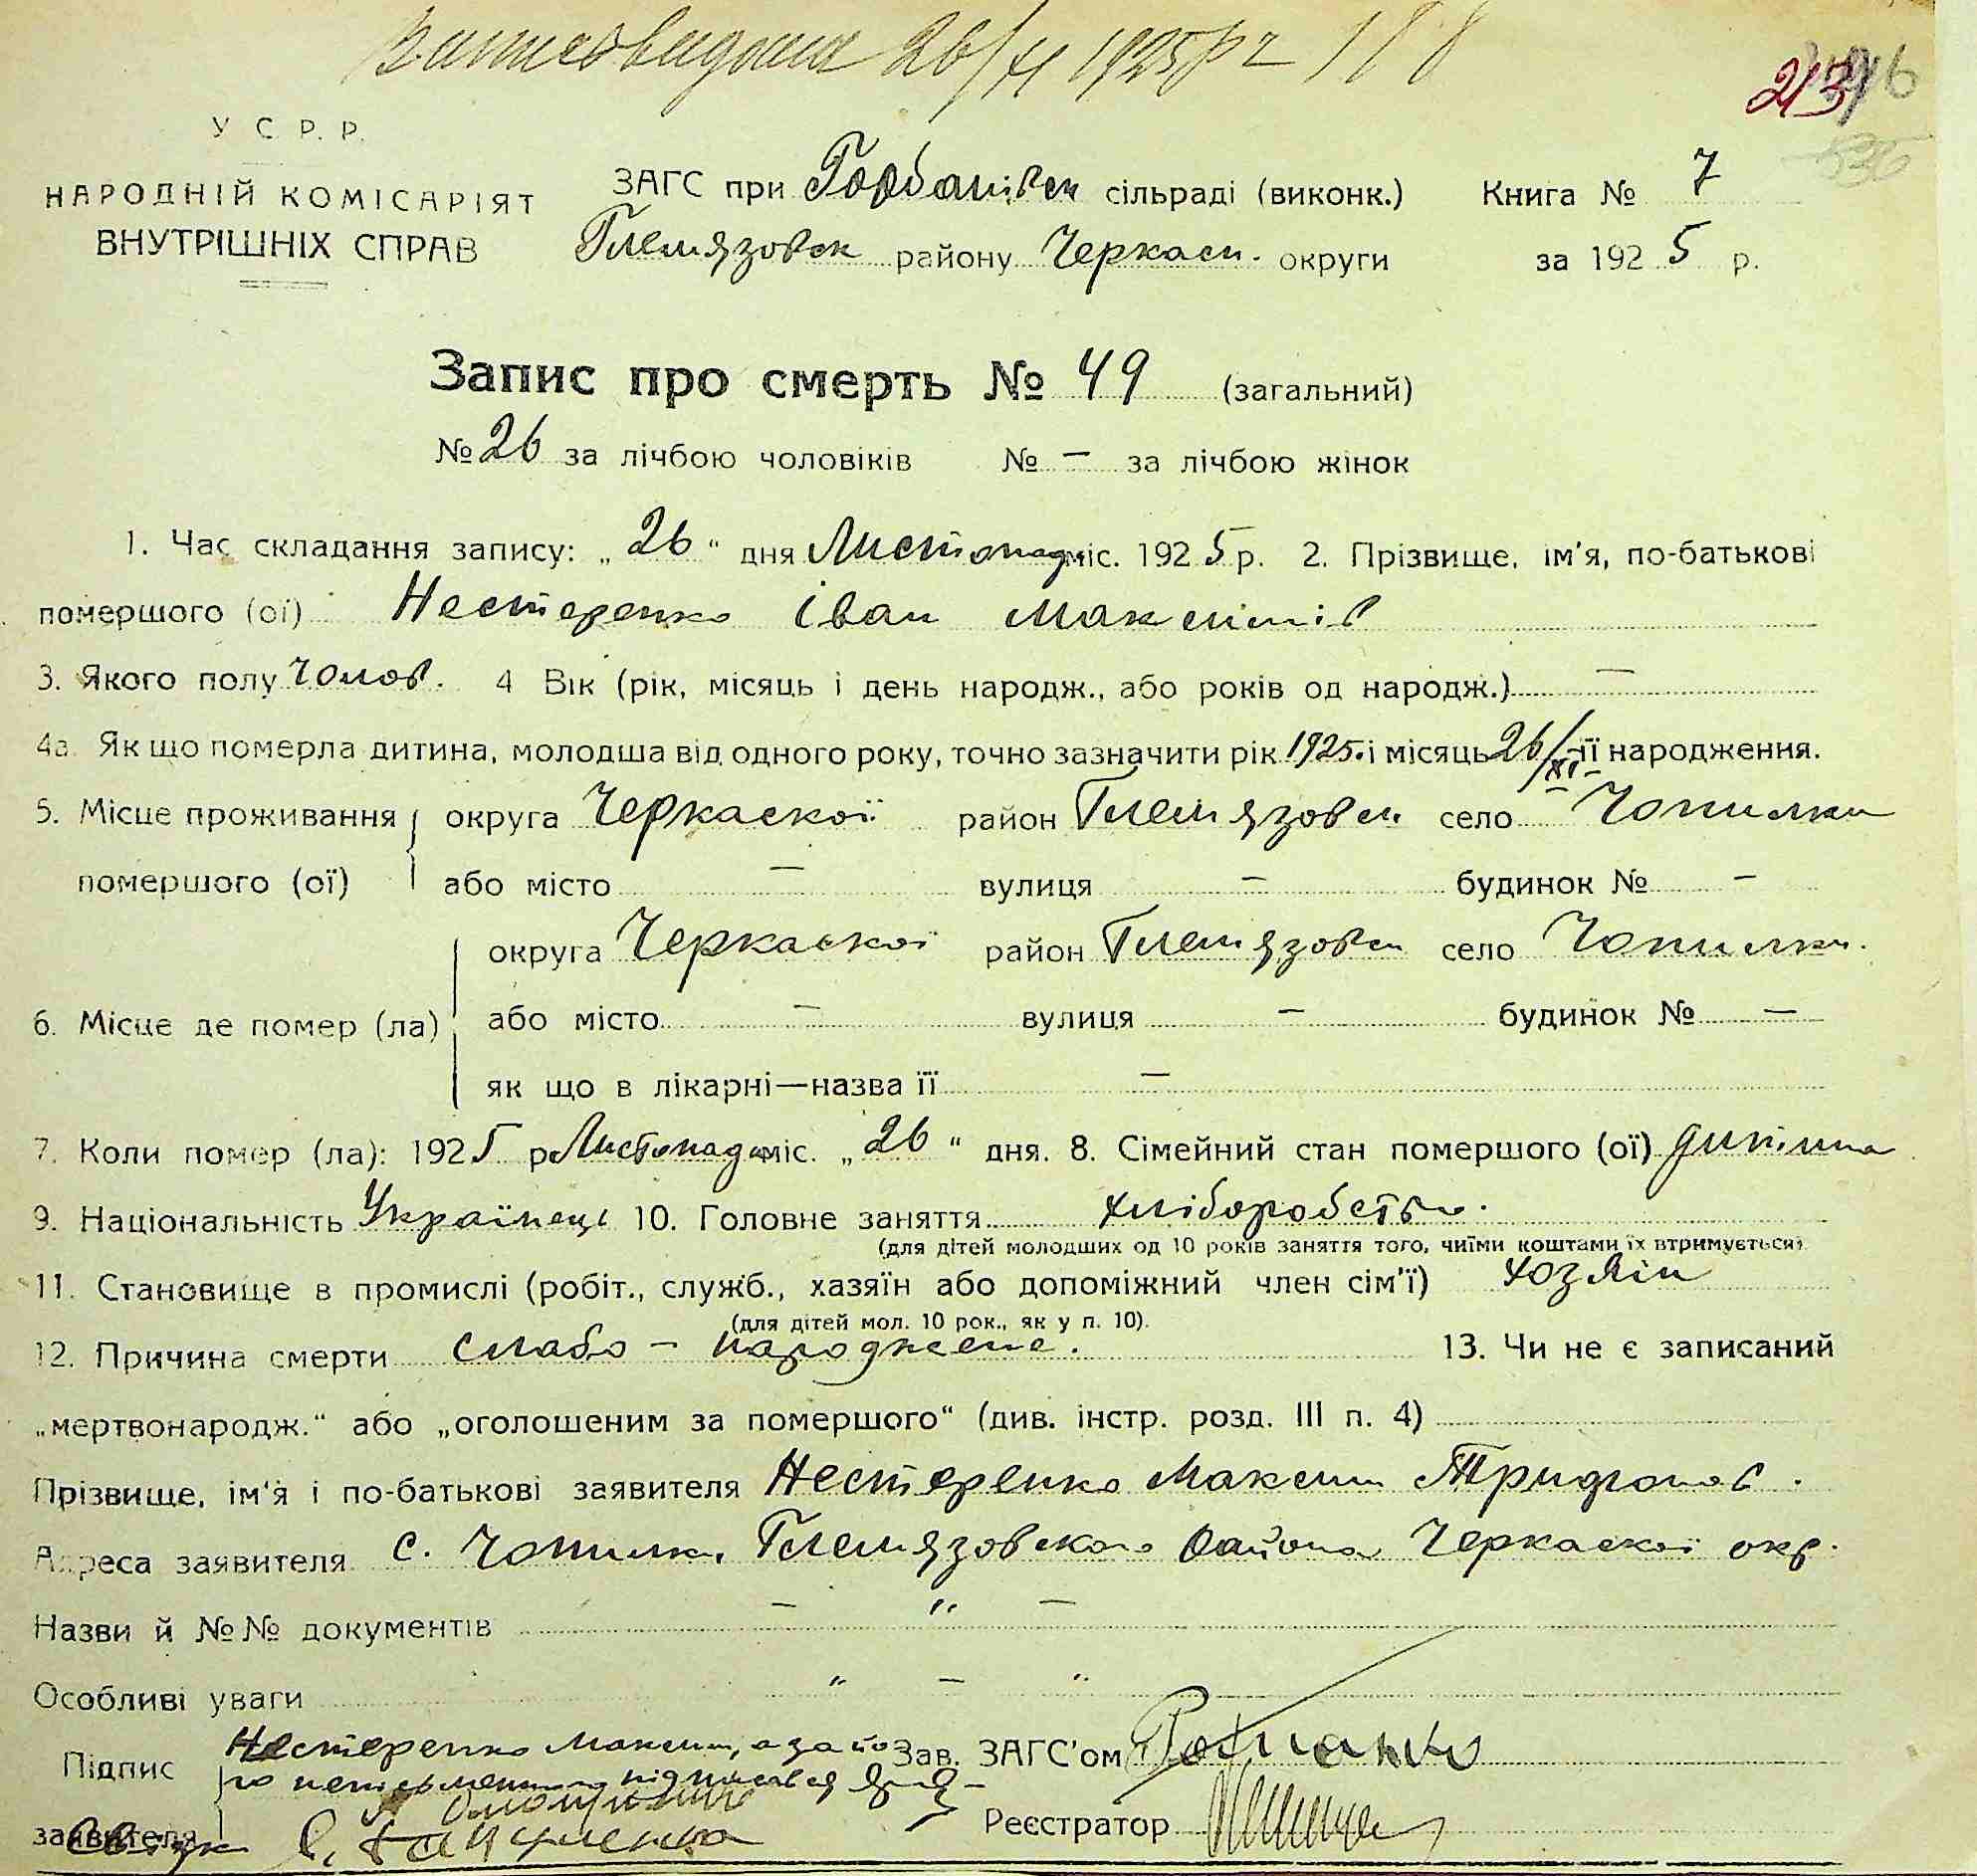 26/XI 1925 р
213
У С Р. Р.
НАРОДНІЙ КОМІСАРІЯТ
ВНУТРІШНІХ СПРАВ
ЗАГС при Горбанівськ сільраді (виконк.) Книга № 7
Гельмязовск району Черкаси. округи за 1925 р.
Запис про смерть № 49 (загальний)
№ 26 за лічбою чоловіків № — за лічбою жінок
1. Час складання запису: „26“ дня Листопада міс. 1925 р. 2. Прізвище, ім'я, по-батькові
помершого (ої) Нестеренко Іван Максимів
3. Якого полу чолов. 4 Вік (рік, місяць і день народж., або років од народж.) —
4а. Як що померла дитина, молодша від одного року, точно зазначити рік 1925. і місяць 26/XI її народження.
5. Місце проживання округа Черкаської район село Чопилки
помершого (ої) або місто — вулиця — будинок № —
округа Черкаської район село Чопилки.
6. Місце де помер (ла) або місто — вулиця — будинок № —
як що в лікарні—назва її —
7. Коли помер (ла): 1925 р. Листопада міс. „26“ дня. 8. Сімейний стан помершого (ої) дитина
9. Національність Українець 10. Головне заняття хліборобство.
(для дітей молодших од 10 років заняття того, чиїми коштами їх втримується)
11. Становище в промислі (робіт., служб., хазяїн або допоміжний член сім'ї) хозяїн
(для дітей мол. 10 рок., як у п. 10).
12. Причина смерти слабо - народжене. 13. Чи не є записаний
„мертвонародж.“ або „оголошеним за помершого“ (див. інстр. розд. III п. 4)
Прізвище, ім'я і по-батькові заявителя Нестеренко Максим Трифонов.
Адреса заявителя с. Чопилки, района Черкаської окр.
Назви й №№ документів — " —
Особливі уваги " — "
Підпис Нестеренко Максим, а за йо Зав. ЗАГС'ом
го неписьменного підписався
заявителя Реєстратор